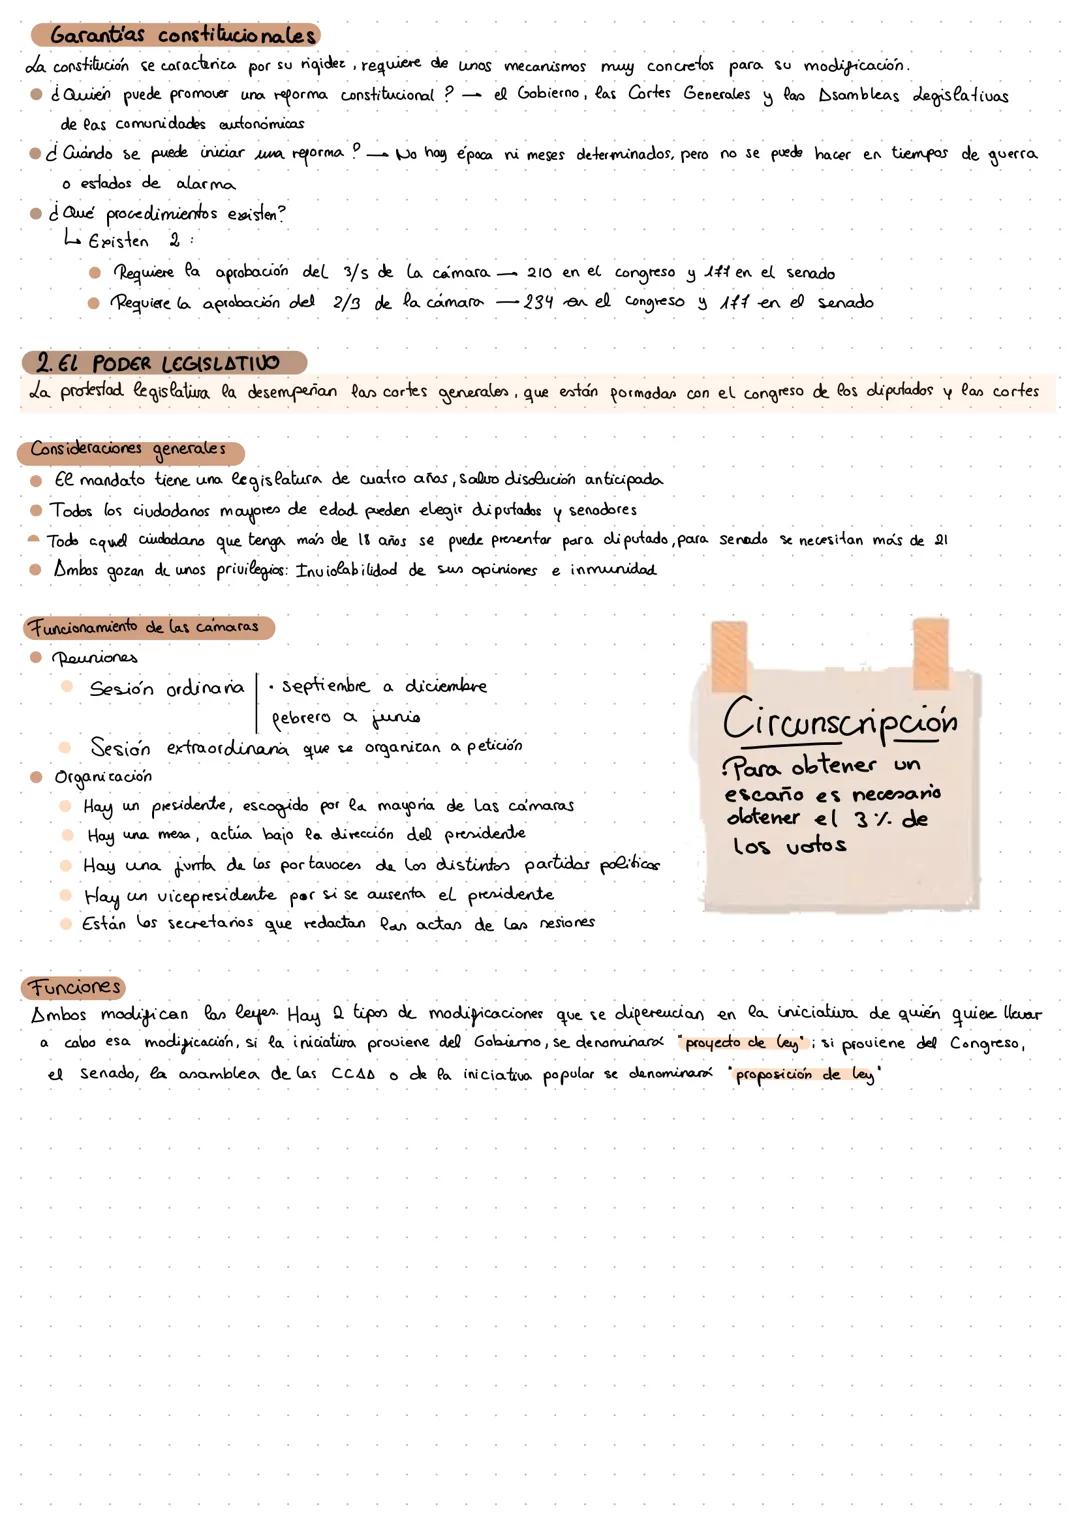 Garantías constitucionales
La constitución se caracteriza por su rigidez, requiere de unos mecanismos muy concretos para su modificación.
¿Quién puede promover una reforma constitucional? → el Gobierno, las Cortes Generales y las Asambleas Legislativas
de las comunidades autonómicas
¿Cuándo se puede iniciar una reforma? → No hay época ni meses determinados, pero no se puede hacer en tiempos de guerra
o estados de alarma
¿Qué procedimientos existen?
↳ Existen 2:
Requiere la aprobación del 3/5 de la cámara → 210 en el congreso y 177 en el senado
Requiere la aprobación del 2/3 de la cámara → 234 en el congreso y 177 en el senado
2. El PODER LEGISLATIVO
La protestad legislativa la desempeñan las cortes generales, que están formadas con el congreso de los diputados y las cortes
Consideraciones generales
El mandato tiene una legislatura de cuatro años, salvo disolución anticipada
Todos los ciudadanos mayores de edad pueden elegir diputados y senadores
Todo aquel ciudadano que tenga más de 18 años se puede presentar para diputado, para senado se necesitan más de 21
Ambos gozan de unos privilegios: Inviolabilidad de sus opiniones e inmunidad
Funcionamiento de las cámaras
Reuniones
Sesión ordinaria | · septiembre a diciembre
febrero a junio
Sesión extraordinaria que se organizan a petición
Organización
Hay un presidente, escogido por la mayoría de las cámaras
Hay una mesa, actúa bajo la dirección del presidente
Hay una junta de los portavoces de los distintos partidos políticos
Hay un vicepresidente por si se ausenta el presidente
Están los secretarios que redactan las actas de las sesiones
Circunscripción
·Para obtener un
escaño es necesario
obtener el 3% de
los votos
Funciones
Ambos modifican las leyes. Hay 2 tipos de modificaciones que se diferencian en la iniciativa de quién quiere llevar
a cabo esa modificación, si la iniciativa proviene del Gobierno, se denominará "proyecto de ley"; si proviene del Congreso,
el Senado, la asamblea de las CCAA o de la iniciativa popular se denominará "proposición de ley"